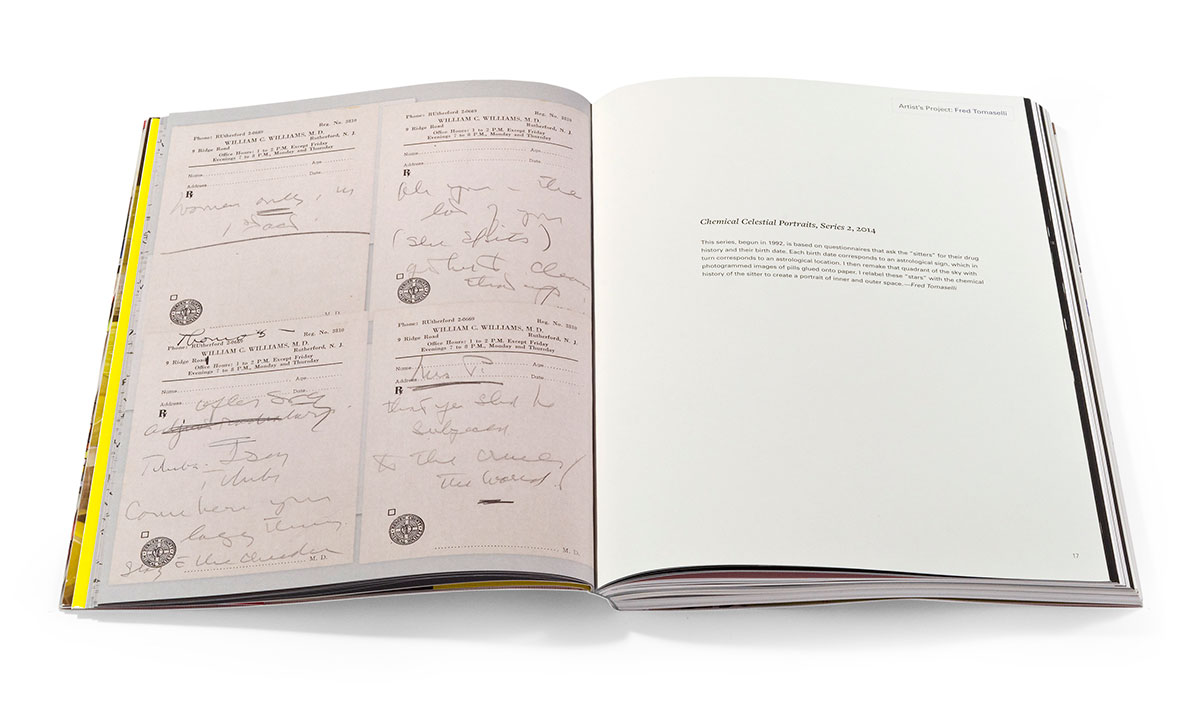 Phone: RUtherford 2-0669 Reg. No. 3810
WILLIAM C. WILLIAMS, M.D.
9 Ridge Road Rutherford, N. J.
Office Hours: 1 to 2 P.M. Except Friday
Evenings 7 to 8 P.M., Monday and Thursday
Name Age
Address Date
℞
women only, in
M. D.
Phone: RUtherford 2-0669 Reg. No. 3810
WILLIAM C. WILLIAMS, M.D.
9 Ridge Road Rutherford, N. J.
Office Hours: 1 to 2 P.M. Except Friday
Evenings 7 to 8 P.M., Monday and Thursday
Name Age
Address Date
℞
you - the
of you
(she spits)
get her to clean
Thomas -
Phone: RUtherford 2-0669 Reg. No. 3810
WILLIAM C. WILLIAMS, M.D.
9 Ridge Road Rutherford, N. J.
Office Hours: 1 to 2 P.M. Except Friday
Evenings 7 to 8 P.M., Monday and Thursday
Name Age
Address Date
℞
after
I say
Come here you
lazy thing
the
M. D.
Phone: RUtherford 2-0669 Reg. No. 3810
WILLIAM C. WILLIAMS, M.D.
9 Ridge Road Rutherford, N. J.
Office Hours: 1 to 2 P.M. Except Friday
Evenings 7 to 8 P.M., Monday and Thursday
Name Age
Address Date
Mrs P.
℞
that ye shd b
subject
to the
the World!
M. D.
Artist's Project: Fred Tomaselli
Chemical Celestial Portraits, Series 2, 2014
This series, begun in 1992, is based on questionnaires that ask the "sitters" for their drug
history and their birth date. Each birth date corresponds to an astrological sign, which in
turn corresponds to an astrological location. I then remake that quadrant of the sky with
photogrammed images of pills glued onto paper. I relabel these "stars" with the chemical
history of the sitter to create a portrait of inner and outer space.—Fred Tomaselli
17